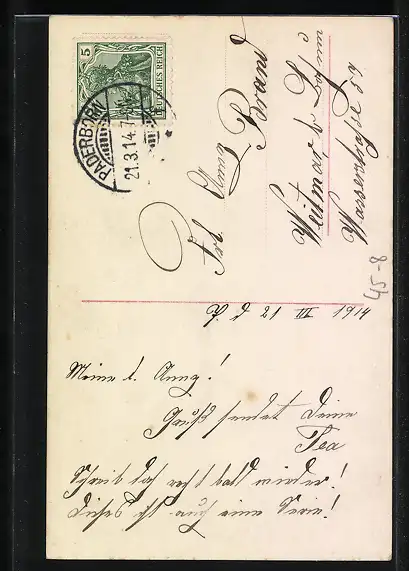 5
DEUTSCHES REICH
PADERBORN
21.3.14.7
Frl. Anny
Brand
Weitmar b. Bochum
Wasserstraße 89
45-8
P. d 21 III 1914
Meine l. Anny!
Gruß sendet Deine
Tea
Schreib doch recht bald wieder!
Dieses ist auch eine Serie!